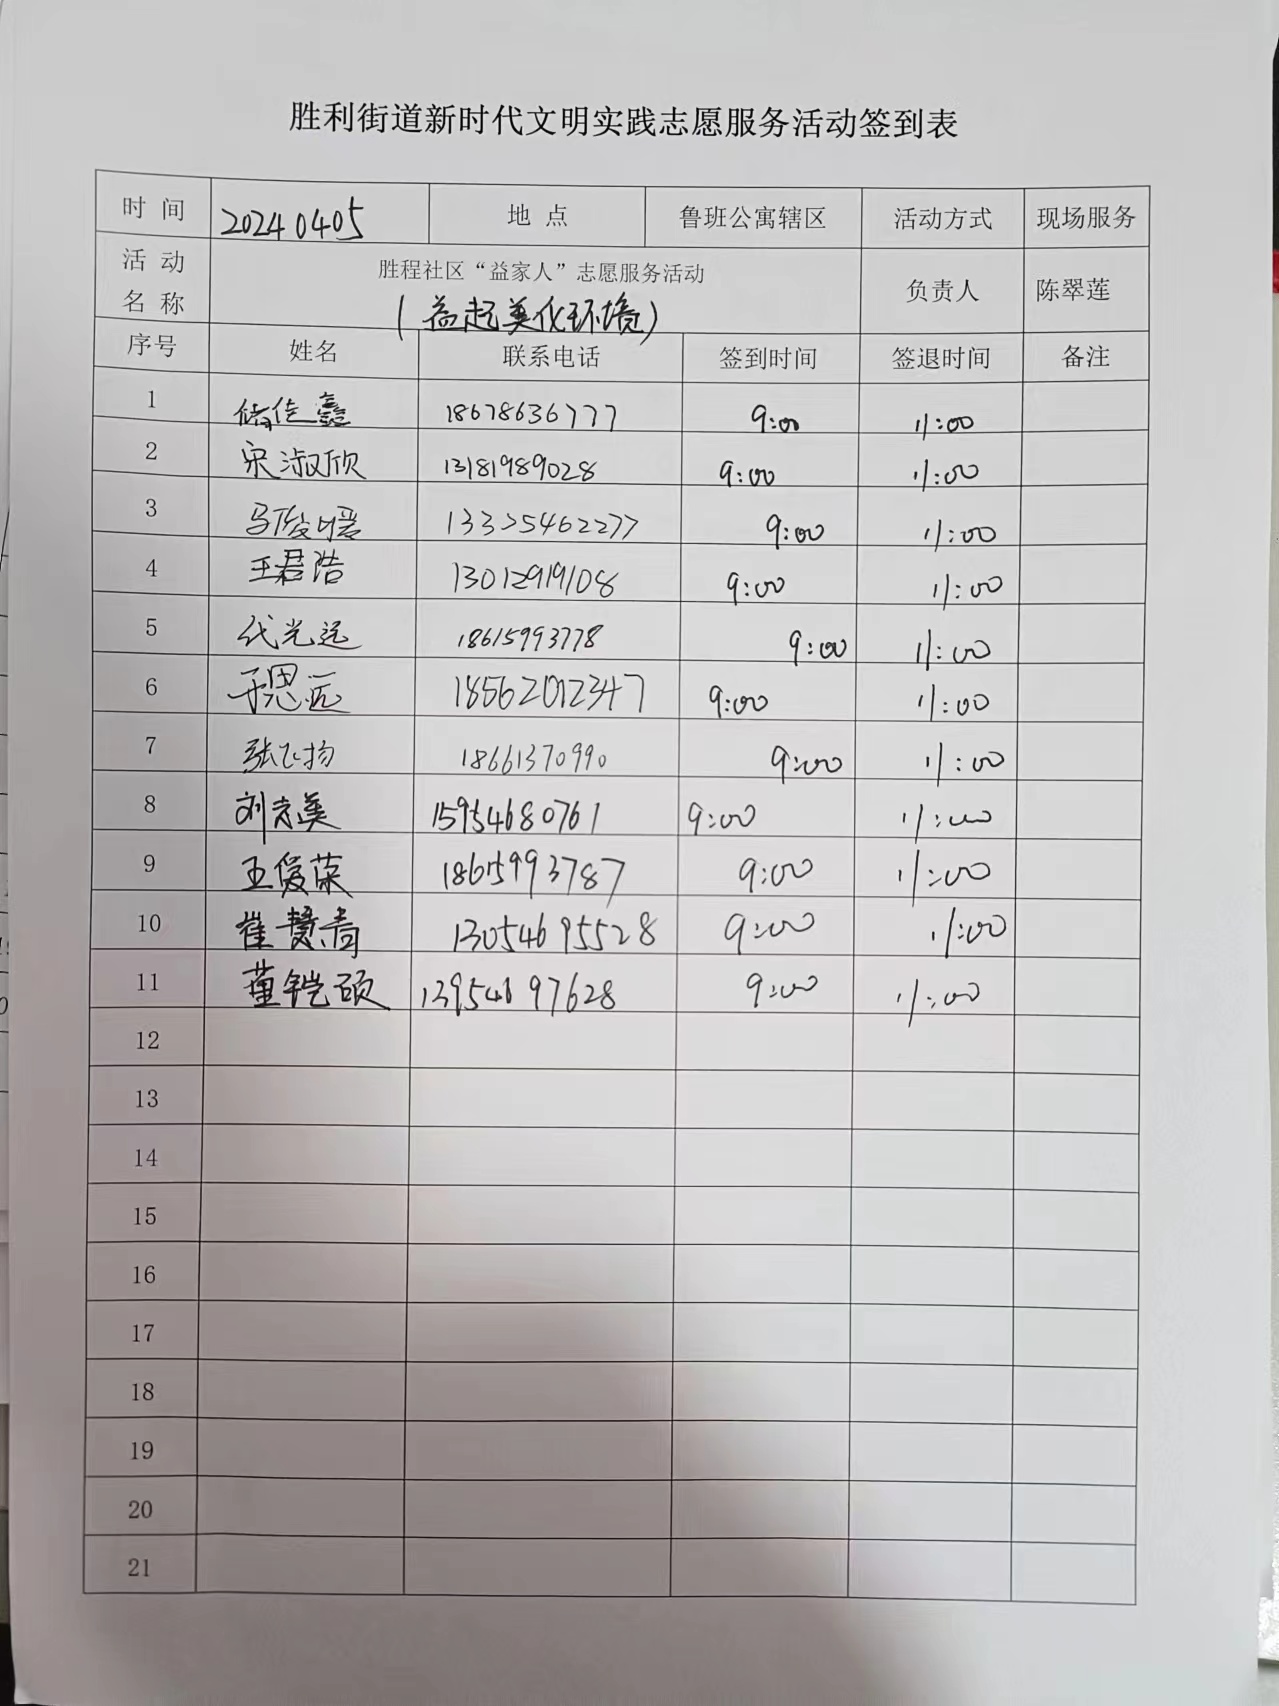 胜利街道新时代文明实践志愿服务活动签到表
时 间 20240405 地 点 鲁班公寓辖区 活动方式 现场服务
活 动 名 称 胜程社区“益家人”志愿服务活动 (益起美化环境) 负责人 陈翠莲
序号 姓名 联系电话 签到时间 签退时间 备注
1 储佳鑫 18678636777 9:00 11:00
2 宋淑欣 13181989028 9:00 11:00
3 马俊 13325462277 9:00 11:00
4 王君浩 13012919108 9:00 11:00
5 代光远 18615993778 9:00 11:00
6 于思远 18562012347 9:00 11:00
7 张飞扬 18661370990 9:00 11:00
8 刘志英 15954680761 9:00 11:00
9 王俊荣 18615993787 9:00 11:00
10 崔慧青 13054695528 9:00 11:00
11 董铠硕 13954697628 9:00 11:00
12
13
14
15
16
17
18
19
20
21